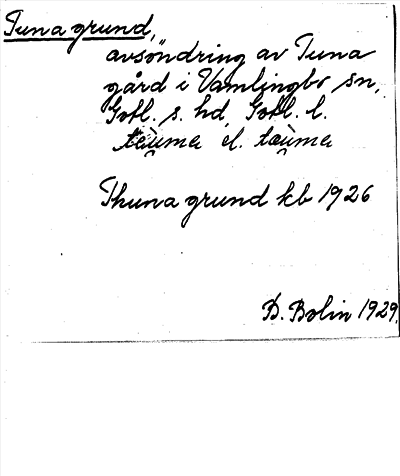 Tuna grund,
avsöndring av Tuna
gård i Vamlingbo sn,
Gotl. s. hd, Gotl. l.
taùma el. tæùma
Thuna grund kb 1926
D. Bolin 1929.